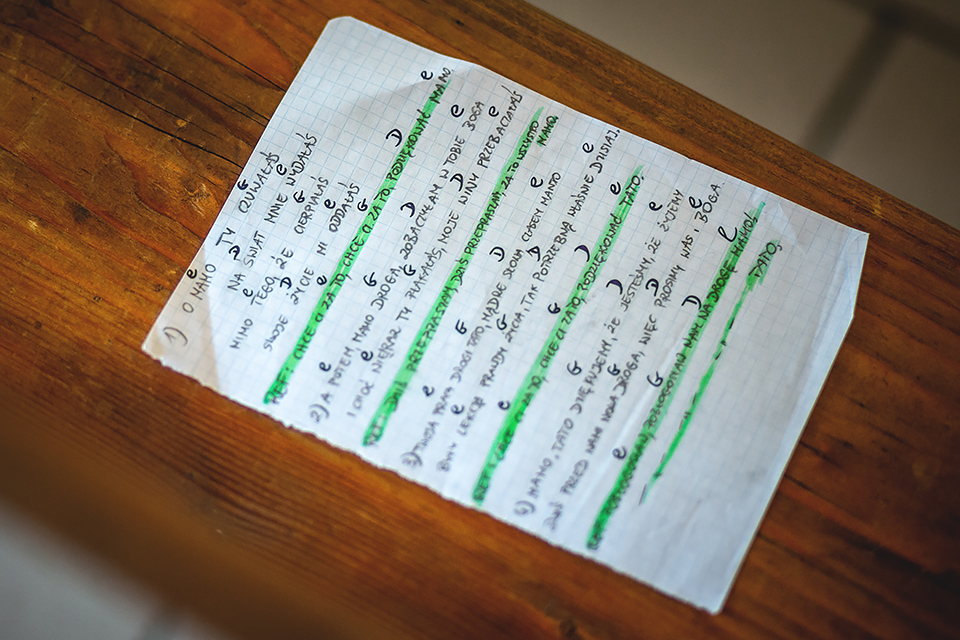 e D G
1) O MAMO TY CZUWAŁAŚ
e
NA ŚWIAT MNIE WYDAŁAŚ
e D G
MIMO TEGO, ŻE CIERPIAŁAŚ
e
SWOJE ŻYCIE MI ODDAŁAŚ
e G D e
REF: CHCĘ CI ZA TO, CHCĘ CI ZA TO, PODZIĘKOWAĆ MAMO.
e G D e
2) A POTEM, MAMO DROGA, ZOBACZYŁAM W TOBIE BOGA
e G D e
I CHOĆ NIERAZ TY PŁAKAŁAŚ, MOJE WINY PRZEBACZAŁAŚ
DZIŚ PRZEPRASZAM, DZIŚ PRZEPRASZAM, ZA TO WSZYSTKO
MAMO.
e G D e
3) TWOJA PRACA DROGI TATO, MĄDRE SŁOWA CZASEM
e G D e
BYŁY LEKCJĄ PRAWDY ŻYCIA, TAK POTRZEBNĄ WŁAŚNIE DZISIAJ.
e G D e
REF: CHCĘ CI ZA TO, CHCĘ CI ZA TO, PODZIĘKOWAĆ TATO.
G D e
4) MAMO, TATO DZIĘKUJEMY, ŻE JESTEŚMY, ŻE ŻYJEMY
G D e
DZIŚ PRZED NAMI NOWA DROGA, WIĘC PROSIMY WAS, I BOGA
e G D e
REF: POBŁOGOSŁAW NAM NA DROGĘ MAMO!
TATO,